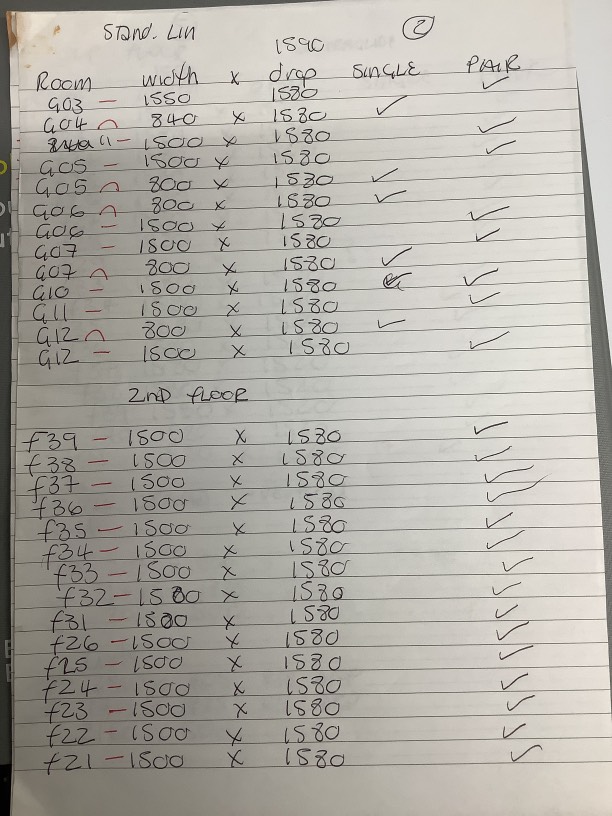 Stand. Lin ②
1890
Room width x drop SINGLE PAIR
G03 — 1550 1580 ✓
G04 ⌒ 840 x 1580 ✓
" — 1500 x 1580 ✓
G05 — 1500 x 1580 ✓
G05 ⌒ 800 x 1580 ✓
G06 ⌒ 800 x 1580 ✓
G06 — 1500 x 1580 ✓
G07 — 1500 x 1580 ✓
G07 ⌒ 800 x 1580 ✓
G10 — 1500 x 1580 ✓
G11 — 1500 x 1580 ✓
G12 ⌒ 800 x 1580 ✓
G12 — 1500 x 1580 ✓
2nd FLOOR
f39 — 1500 x 1580 ✓
f38 — 1500 x 1580 ✓
f37 — 1500 x 1580 ✓
f36 — 1500 x 1580 ✓
f35 — 1500 x 1580 ✓
f34 — 1500 x 1580 ✓
f33 — 1500 x 1580 ✓
f32 — 1500 x 1580 ✓
f31 — 1500 x 1580 ✓
f26 — 1500 x 1580 ✓
f25 — 1500 x 1580 ✓
f24 — 1500 x 1580 ✓
f23 — 1500 x 1580 ✓
f22 — 1500 x 1580 ✓
f21 — 1500 x 1580 ✓